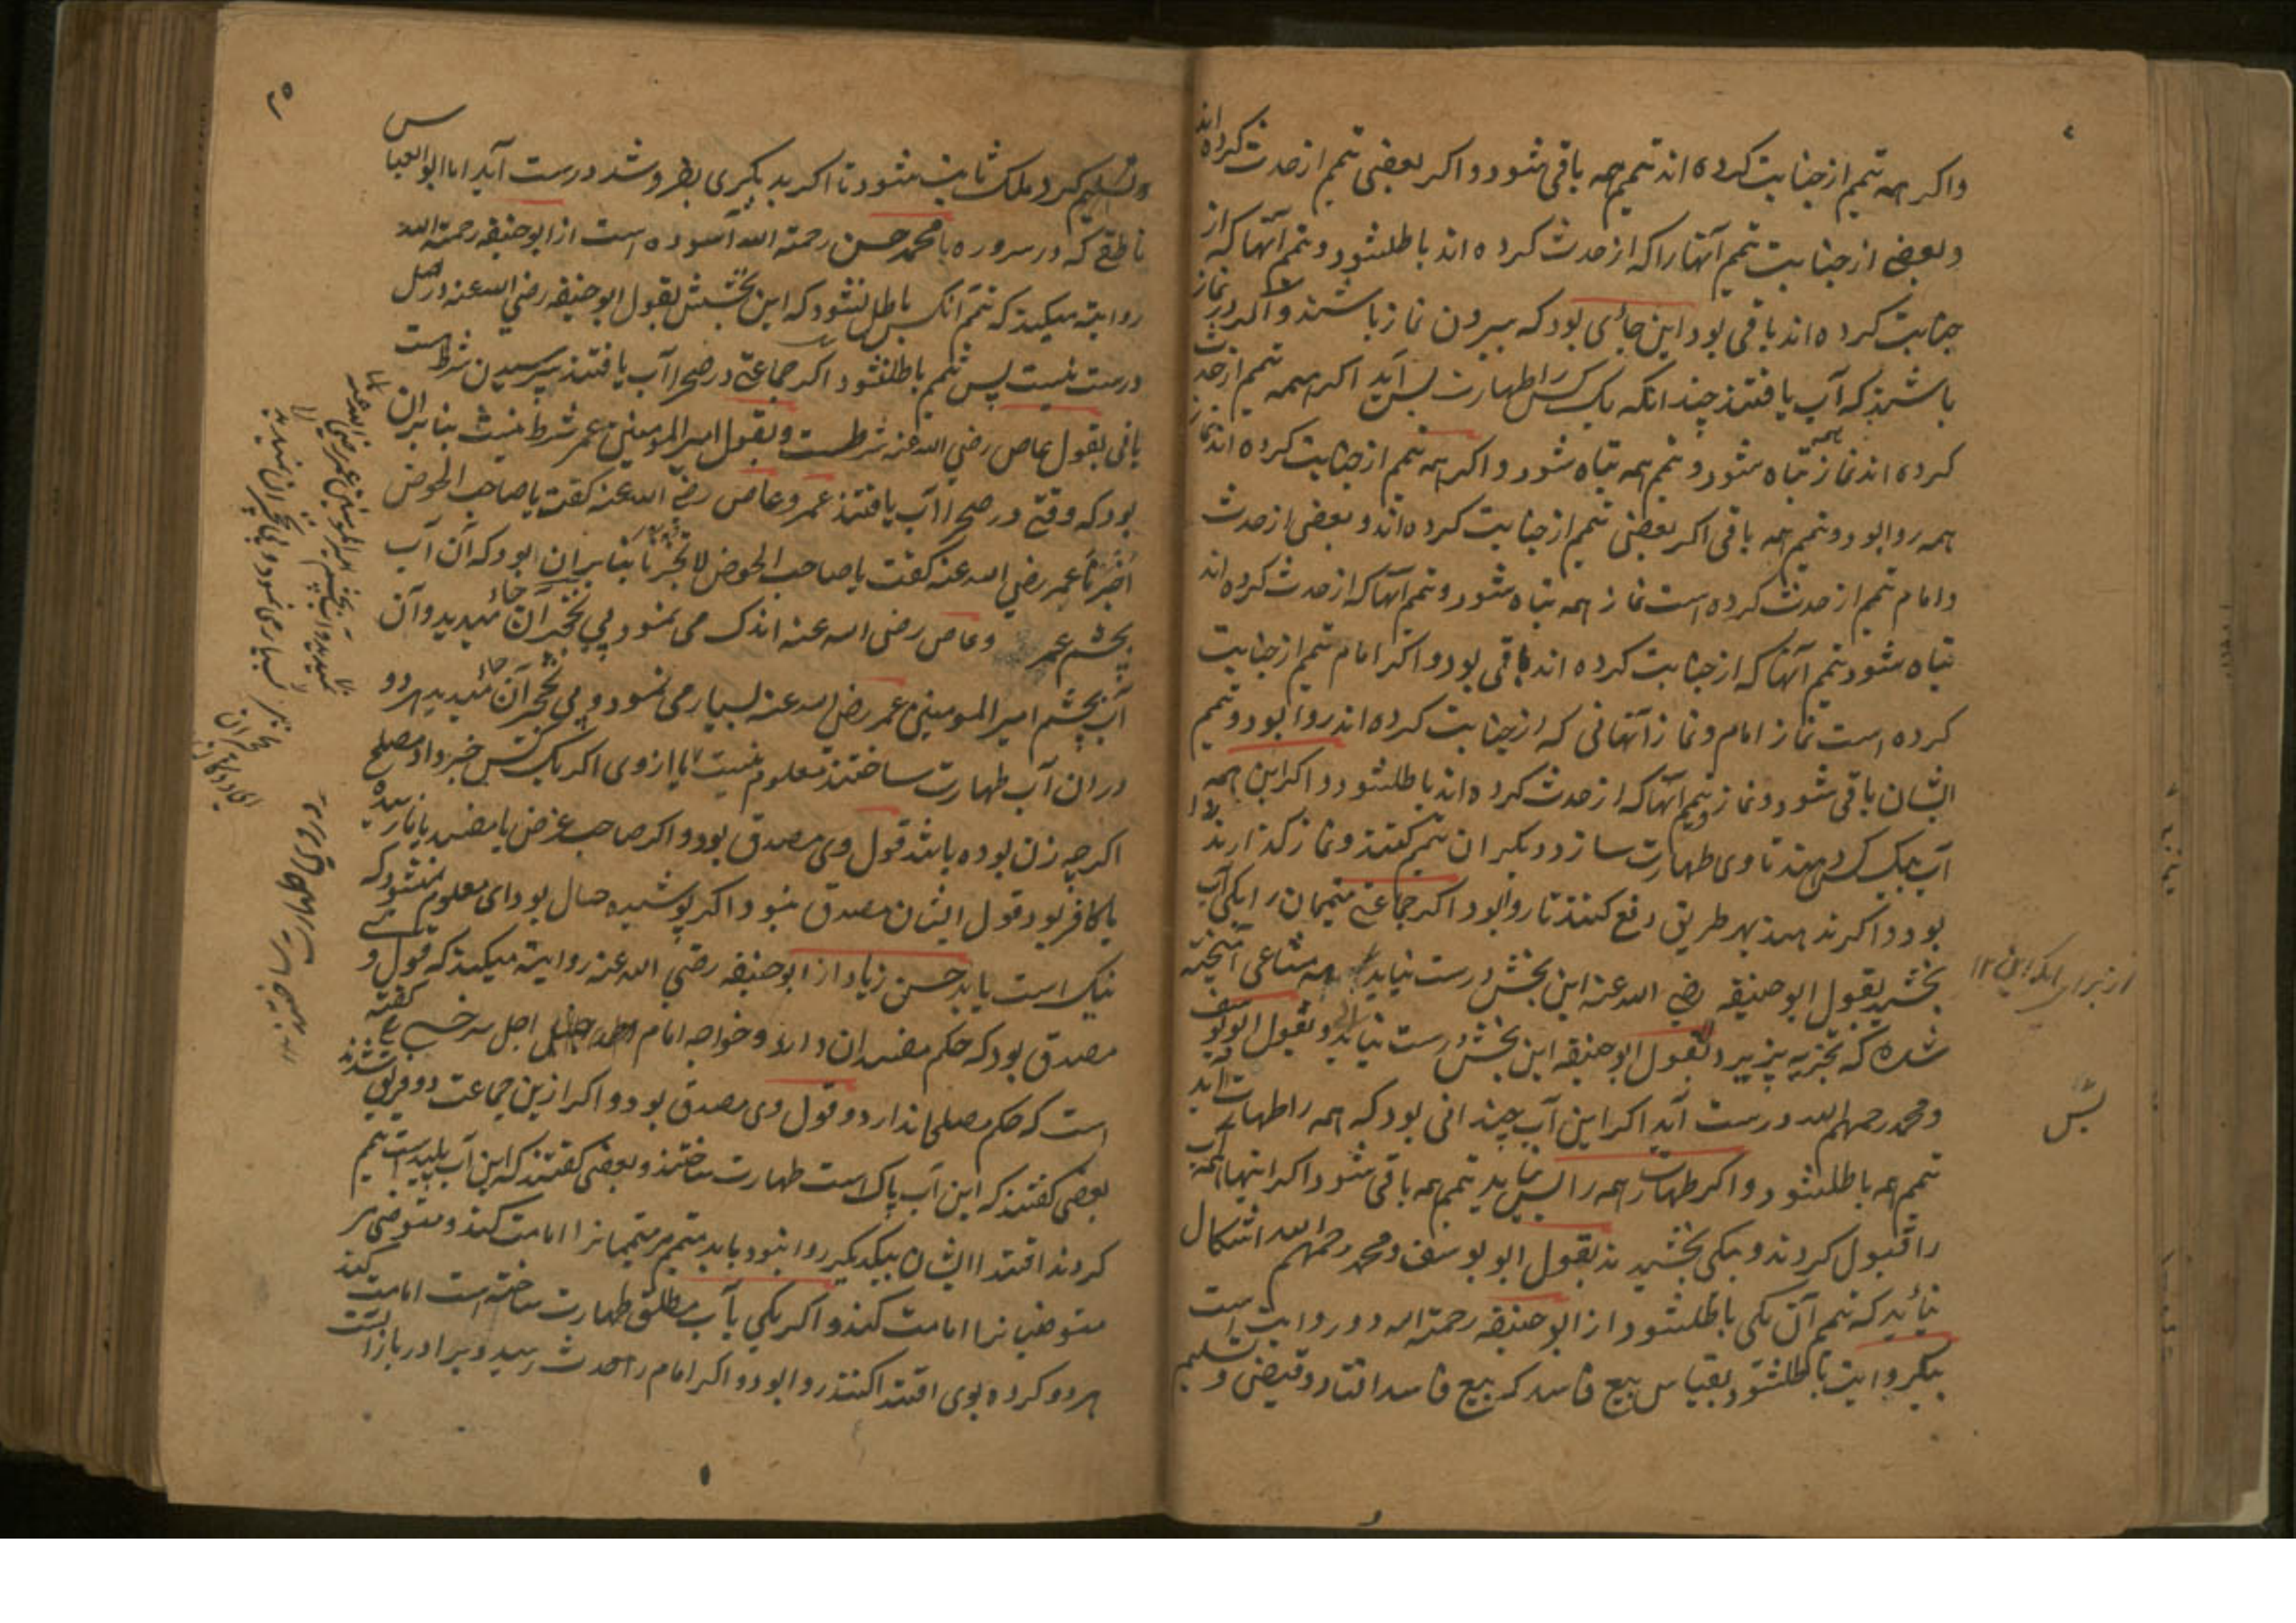 واکر همه تیمم از جنابت کرده اند تیمم همه باقی شود و اکر بعضی تیمم از حدث کرده اند
و بعضی از جنابت تیمم آنها را که از حدث کرده اند باطلشود و تیمم آنها که از
جنابت کرده اند باقی بود این جائی بود که بیرون نماز باشند و اکر در نماز
باشند که آب یافتند چندانکه یک کس را طهارت بس آید اکر همه تیمم از حدث
کرده اند نماز همه تباه شود و تیمم همه تباه شود و اکر همه تیمم از جنابت کرده اند نماز
همه روا بود و تیمم همه باقی اکر بعضی تیمم از جنابت کرده اند و بعضی از حدث
و امام تیمم از حدث کرده است نماز همه تباه شود و تیمم آنها که از حدث کرده اند
تباه شود تیمم آنها که از جنابت کرده اند باقی بود و اکر امام تیمم از جنابت
کرده است نماز امام و نماز آنهائی که از جنابت کرده اند روا بود و تیمم
ایشان باقی شود و نماز و تیمم آنها که از حدث کرده اند باطلشود و اکر این همه
آب بیک کس دهند تا وی طهارت سازد و دیکران تیمم کنند و نماز کذارند روا
بود و اکر ندهند بهر طریق دفع کنند تا روا بود اکر جماعتی متیممان را یکی آب
بخشید بقول ابو حنیفه رضی الله عنه این بخشش درست نیاید همه مشاعی آمیخته
شده که تجزیه پزیرد بقول ابو حنیفه این بخشش درست نیاید و بقول ابو یوسف
و محمد رحمهم الله درست آید اکر این آب چندانی بود که همه را طهارت آید
تیمم همه باطلشود و اکر طهارت همه را بس نیاید تیمم همه باقی شود اکر اینها همه آب
را قبول کردند و بیکی بخشیدند بقول ابو یوسف و محمد رحمهم الله اشکال
نیاید که تیمم آن یکی باطلشود از ابو حنیفه رحمة الله دو روایت است
بیکروایت باطلشود بقیاس بیع فاسد که بیع فاسد افتاد و قبض و تسلیم
بس
و تسلیم کرد ملک ثابت شود تا اکر بدیکری بفروشد درست آید اما ابو العباس
ناطقی که در سروره با محمد حسن رحمة الله آسوده است از ابو حنیفه رحمة الله
روایة میکند که تیمم آنکس باطل نشود که این بخشش بقول ابو حنیفه رضی الله عنه در اصل
درست نیست پس تیمم باطلنشود اکر جماعتی در صحرا آب یافتند پرسیدن شرط است
یا نی بقول عاص رضی الله عنه شرطست و بقول امیر المومنین عمر شرط نیست بنابران
بود که وقتی در صحرا آب یافتند عمر و عاص رضی الله عنه کفت یا صاحب الحوض
اخبرنا عمر رضی الله عنه کفت یا صاحب الحوض لا تخبرنا بنابران بود که آن آب
بچشم عمر و عاص رضی الله عنه اندک می نمود پی تحجر آن جای میدید و آن
آب بچشم امیر المومنین عمر رضی الله عنه بسیار می نمود و پی تحجر آن جای میدید هر دو
دران آب طهارت ساختند معلوم نیست اما ازوی اکر یک کس خبر داد مصلح
اکرچه زن بوده باشد قول وی مصدق بود و اکر صاحب غرض یا مفسد یا نارسیده
یا کافر بود قول ایشان مصدق نبود اکر پوشیده حال بود ای معلوم نشود که
نیک است یا بد حسن زیاد از ابو حنیفه رضی الله عنه روایة میکند که قول وی
مصدق بود که حکم مفسدان دارد و خواجه امام اجل سرخسی کفته
است که حکم مصلحان دارد و قول وی مصدق بود و اکر ازین جماعت دو فریق شدند
بعضی کفتند که این آب پاک است طهارت ساختند و بعضی کفتند که این آب پلید است تیمم
کردند اقتدا ایشان بیکدیکر روا نبود باید متیمم مر متیممانرا امامت کند و متوضی مر
متوضیانرا امامت کند و اکر یکی بآب مطلق طهارت ساخته است امامت کند
هر دو کرده بوی اقتدا کنند روا بود و اکر امام را حدث رسید و برادر باز است